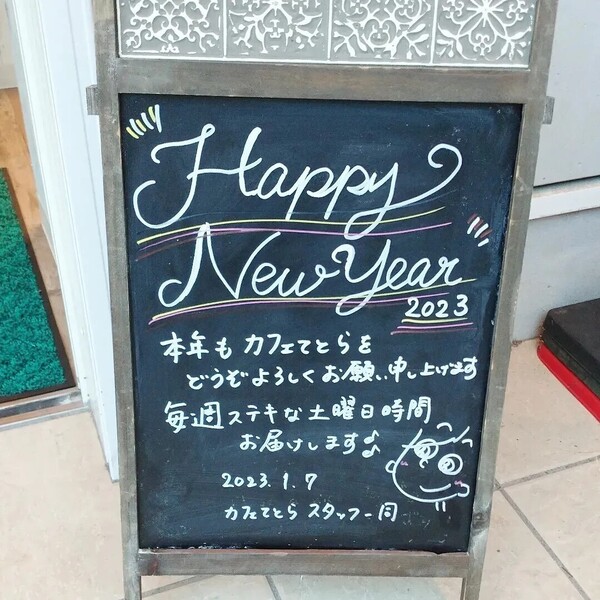 Happy
New Year
2023
本年もカフェてとらを
どうぞよろしくお願い申し上げます
毎週ステキな土曜日時間
お届けします♪
2023.1.7
カフェてとら スタッフ一同